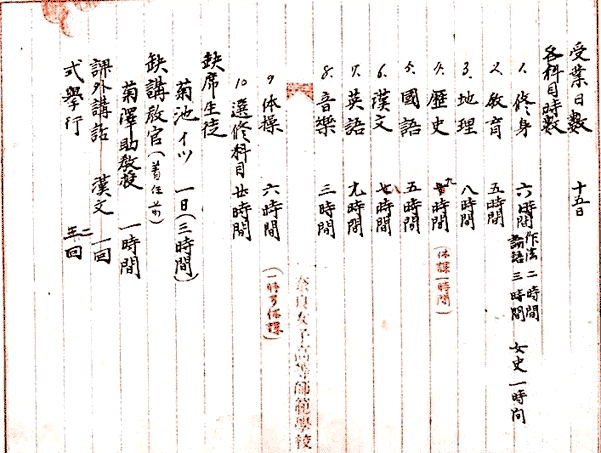 受業日数 十五日
各科目時数
1. 修身 六時間 作法 二時間 論語 三時間 女史 一時間
2. 教育 五時間
3. 地理 八時間
4. 歴史 九時間 (休課一時間)
5. 國語 五時間
6. 漢文 八時間
7. 英語 九時間
8. 音樂 三時間
奈良女子高等師範學校
9 体操 六時間 (一時間休課)
10 選修科目 廿時間
缺席生徒
菊池イツ 一日(三時間)
缺講教官(着任前)
菊澤助教授 一時間
課外講話 漢文 一回
式擧行 二回